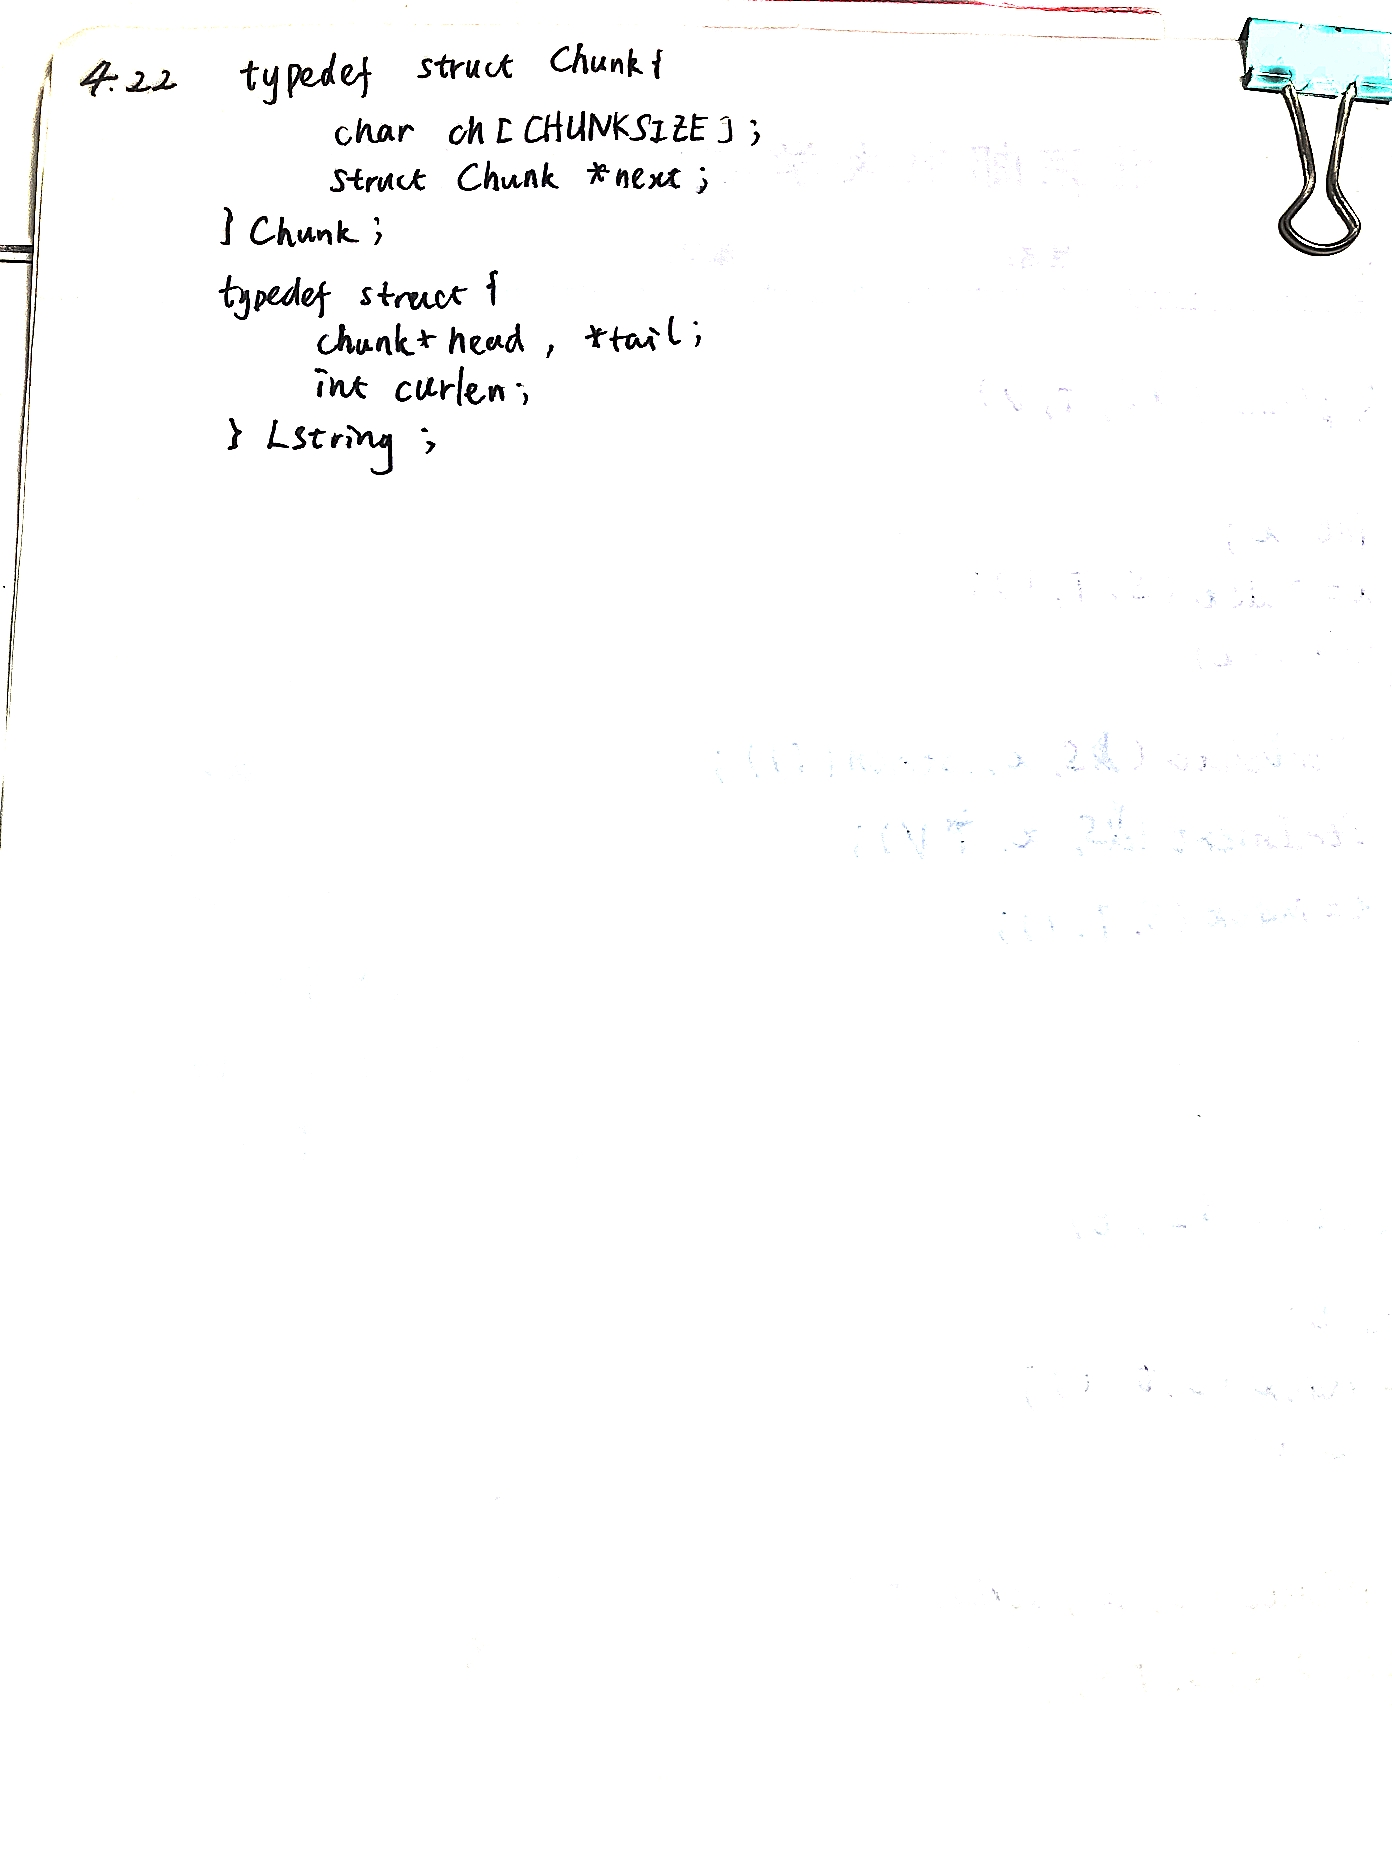 4.22 typedef struct Chunk{
char ch[CHUNKSIZE];
struct Chunk *next;
} Chunk;
typedef struct {
chunk* head, *tail;
int curlen;
} Lstring;